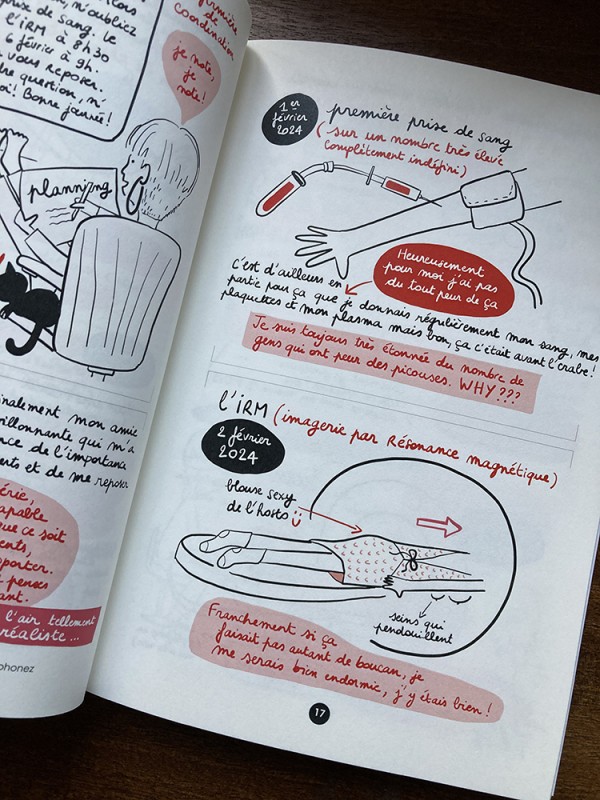 n'oubliez
prise de sang. Le
l'IRM à 8h30
6 février à 9h.
vous reposer.
question, n'
! Bonne journée!
de
coordination
je note,
je
note!
planning
finalement mon amie
qui m'a
de l'importance
et de me reposer
capable
que ce soit
penses
l'air tellement
réaliste...
1er
février
2024
première prise de sang
(sur un nombre très élevé
complètement indéfini)
Heureusement
pour moi j'ai pas
du tout peur de ça
C'est d'ailleurs en
partie pour ça que je donnais régulièrement mon sang, mes
plaquettes et mon plasma mais bon, ça c'était avant l'crabe!
Je suis toujours très étonnée du nombre de
gens qui ont peur des picouses. WHY???
l'IRM (imagerie par Résonance magnétique)
2 février
2024
blouse sexy
de l'hosto
seins qui
pendouillent
Franchement si ça
faisait pas autant de boucan, je
me serais bien endormie, j'y étais bien!
17